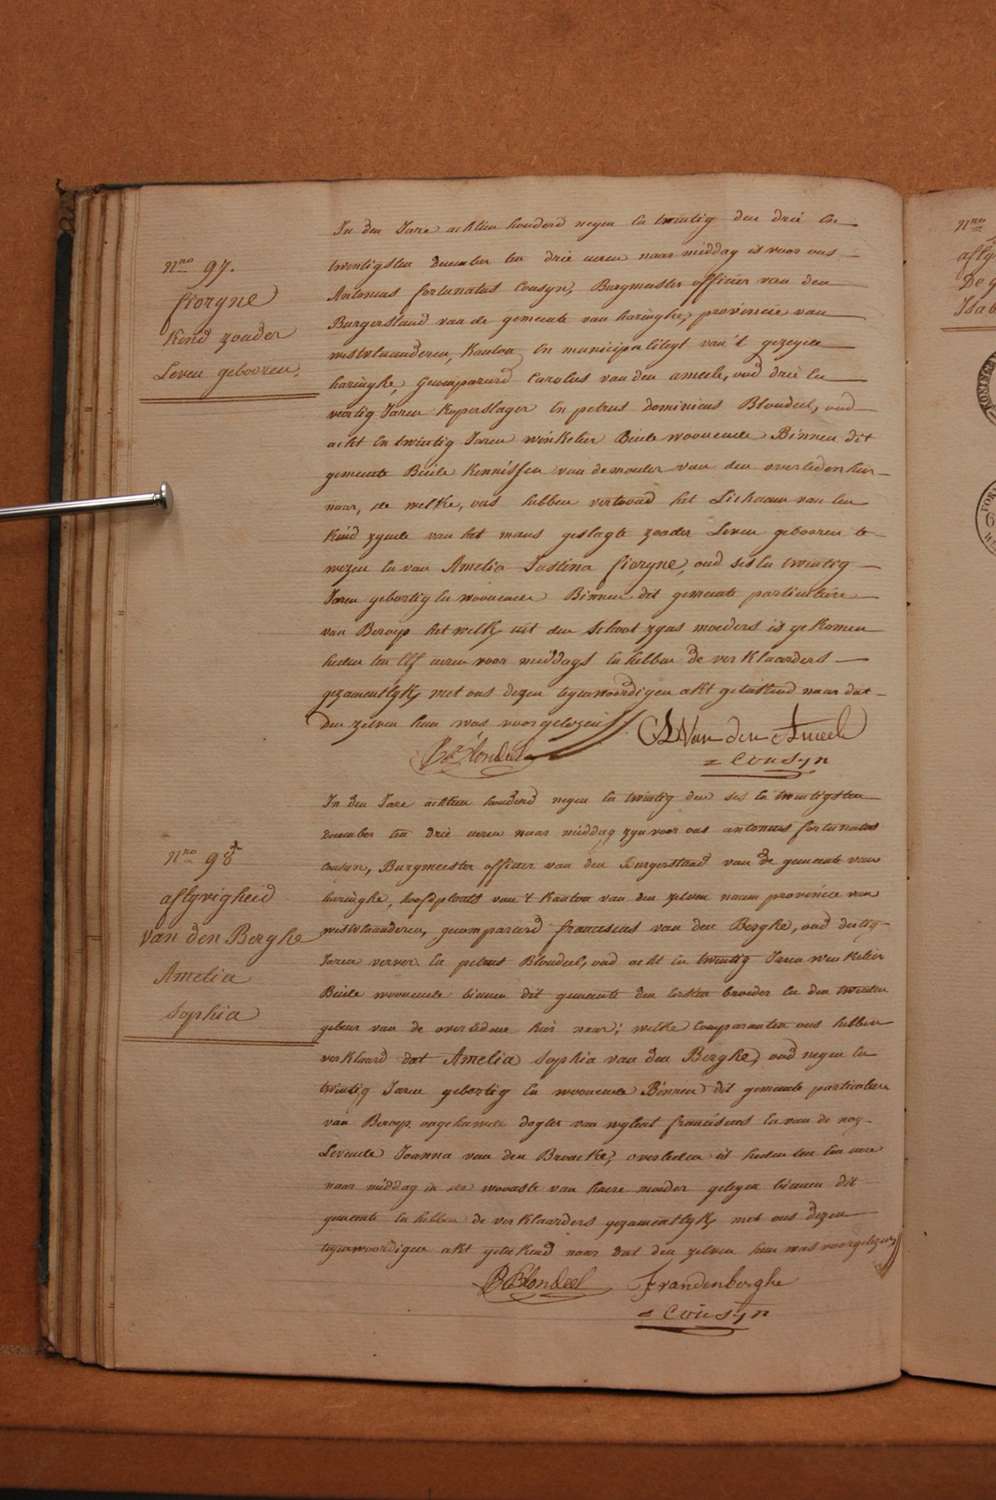 Nro 97.
fioryne
Kind zonder
Leven gebooren.
In den Jare achtien honderd negen en twintig den drie en
twintigsten december ten drie uren naar middag is voor ons
Antonius fortunatus Cousyn, Burgmeester officier van den
Burgerstand van de gemeente van haringhe, provincie van
westvlaanderen, Kanton en municipaliteyt van 't gezeyde
haringhe, Gecompareerd Carolus van den ameele, oud drie en
veertig Jaren Kuperslager en petrus dominicus Blondeel, oud
acht en twintig Jaren winkelier Beide woonende Binnen dit
gemeente Beide Kennissen van de moeder van den overleden hier
naar, de welke, ons hebben vertoond het Lichaem van een
Kind zynde van het mans geslagte zonder Leven gebooren te
wezen en van Amelia Justina fioryne, oud ses en twintig
Jaren gebortig en woonende Binnen dit gemeente particuliere
van Beroep het welk uit den schoot zyns moeders is gekomen
heden ten elf uren voor middags en hebben de verklaarders
gezamentlyk met ons dezen tegenwoordigen akt geteekend naar dat
den zelven hun was voorgelezen
CL Van den Ameele
P. Blondeel
= Cousyn
Nro 98
aflyvigheid
van den Berghe
Amelia
Sophia
In den Jare achtien honderd negen en twintig den ses en twintigsten
december ten drie uren naar middag zyn voor ons antonius fortunatus
Cousyn, Burgmeester officier van den Burgerstand van de gemeente van
haringhe, hoofdplaats van 't Kanton van den zelven naem provincie van
westvlaanderen, gecompareerd franciscus van den Berghe, oud dertig
Jaren verver en petrus Blondeel, oud acht en twintig Jaren winkelier
Beide woonende binnen dit gemeente den eersten broeder en den tweeden
gebuer van de overledene hier naar; welke Comparanten ons hebben
verklaard dat Amelia Sophia van den Berghe, oud negen en
twintig Jaren gebortig en woonende Binnen dit gemeente particuliere
van Beroep ongehuwde dogter van wylent franciscus en van de nog
Levende Joanna van den Broucke, overleden is heden ten een ure
naar middag in de wooнste van haere moeder gelegen binnen dit
gemeente en hebben de verklaarders gezamentlyk met ons dezen
tegenwoordigen akt geteekend naar dat den zelven hun was voorgelezen
P Blondeel
F vandenberghe
= Cousyn
Nro